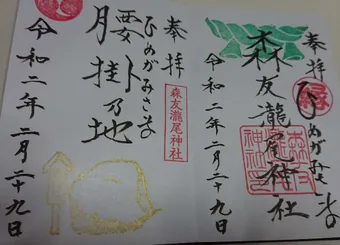 奉拝
縁
ひめがみさま
森友瀧尾神社
令和二年二月二十九日
奉拝
ひめがみさま
腰掛乃地
森友瀧尾神社
令和二年二月二十九日